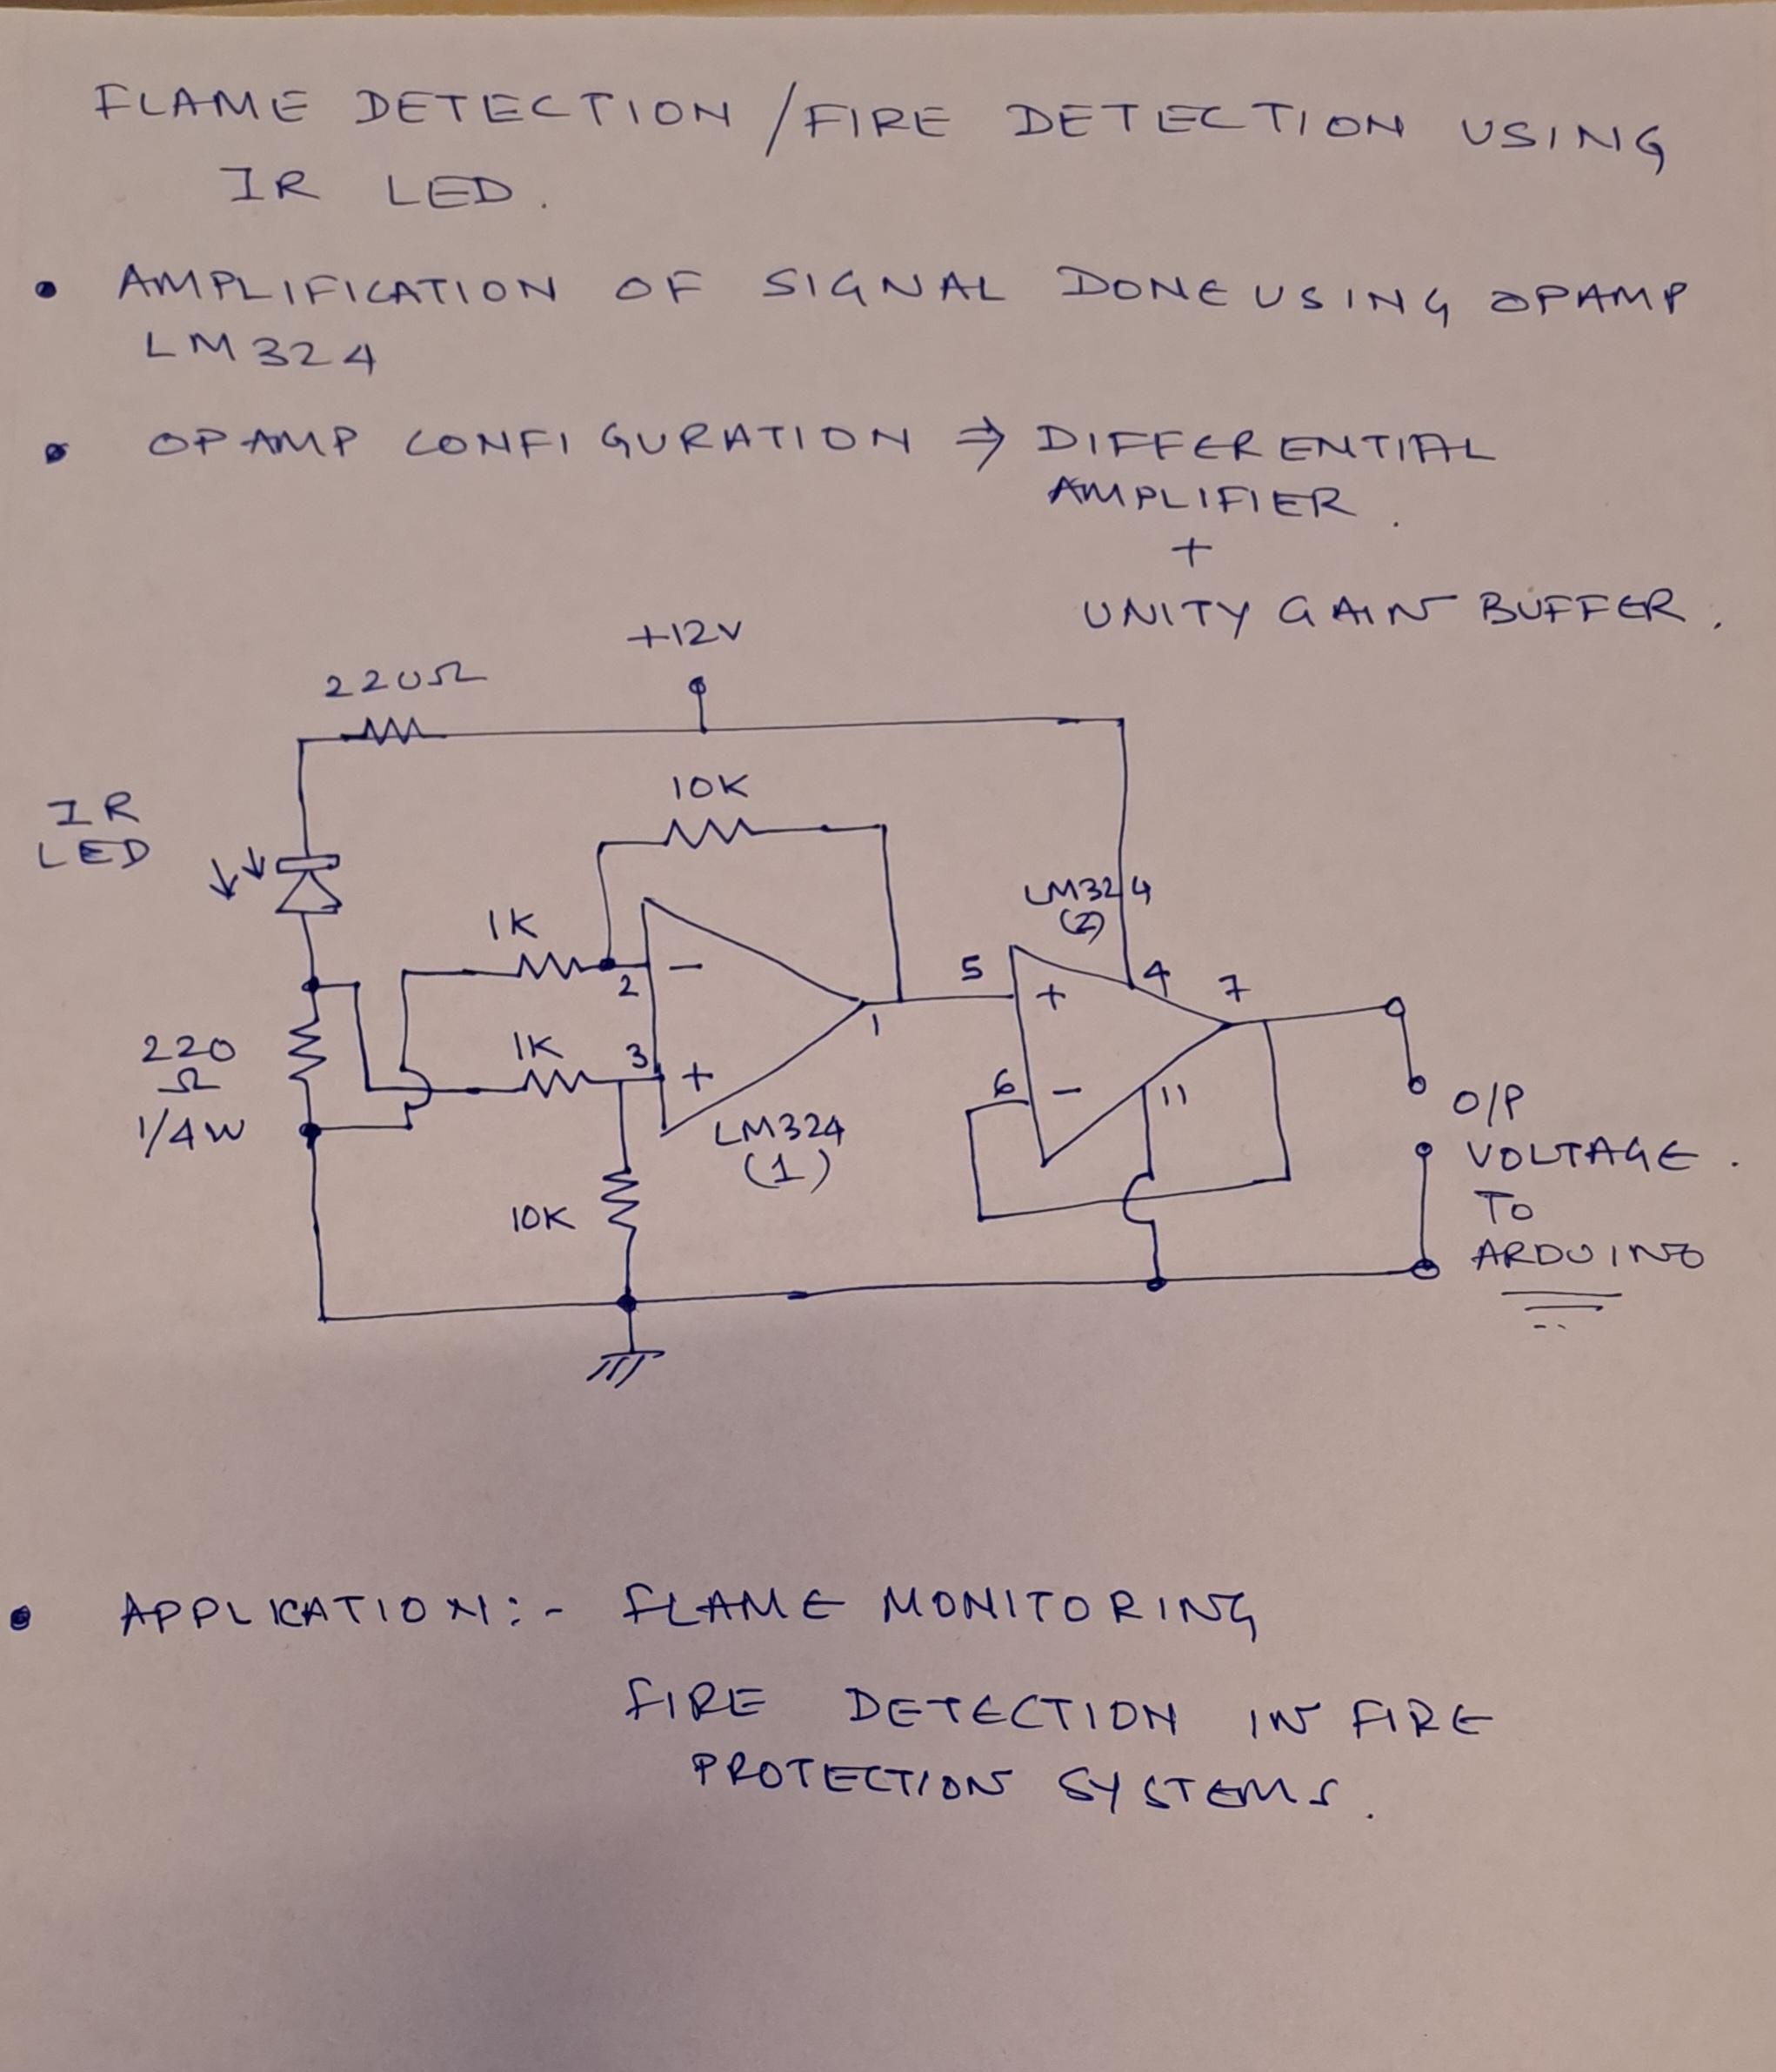 FLAME DETECTION / FIRE DETECTION USING
IR LED.
• AMPLIFICATION OF SIGNAL DONE USING OPAMP
LM324
• OPAMP CONFIGURATION ⇒ DIFFERENTIAL
AMPLIFIER.
+
UNITY GAIN BUFFER.
+12V
220Ω
10K
IR
LED
LM324
(2)
1K
2
−
5
+
4
7
220
Ω
1/4W
1K
3
+
1
6
−
11
O/P
VOLTAGE.
TO
ARDUINO
LM324
(1)
10K
• APPLICATION:- FLAME MONITORING
FIRE DETECTION IN FIRE
PROTECTION SYSTEMS.